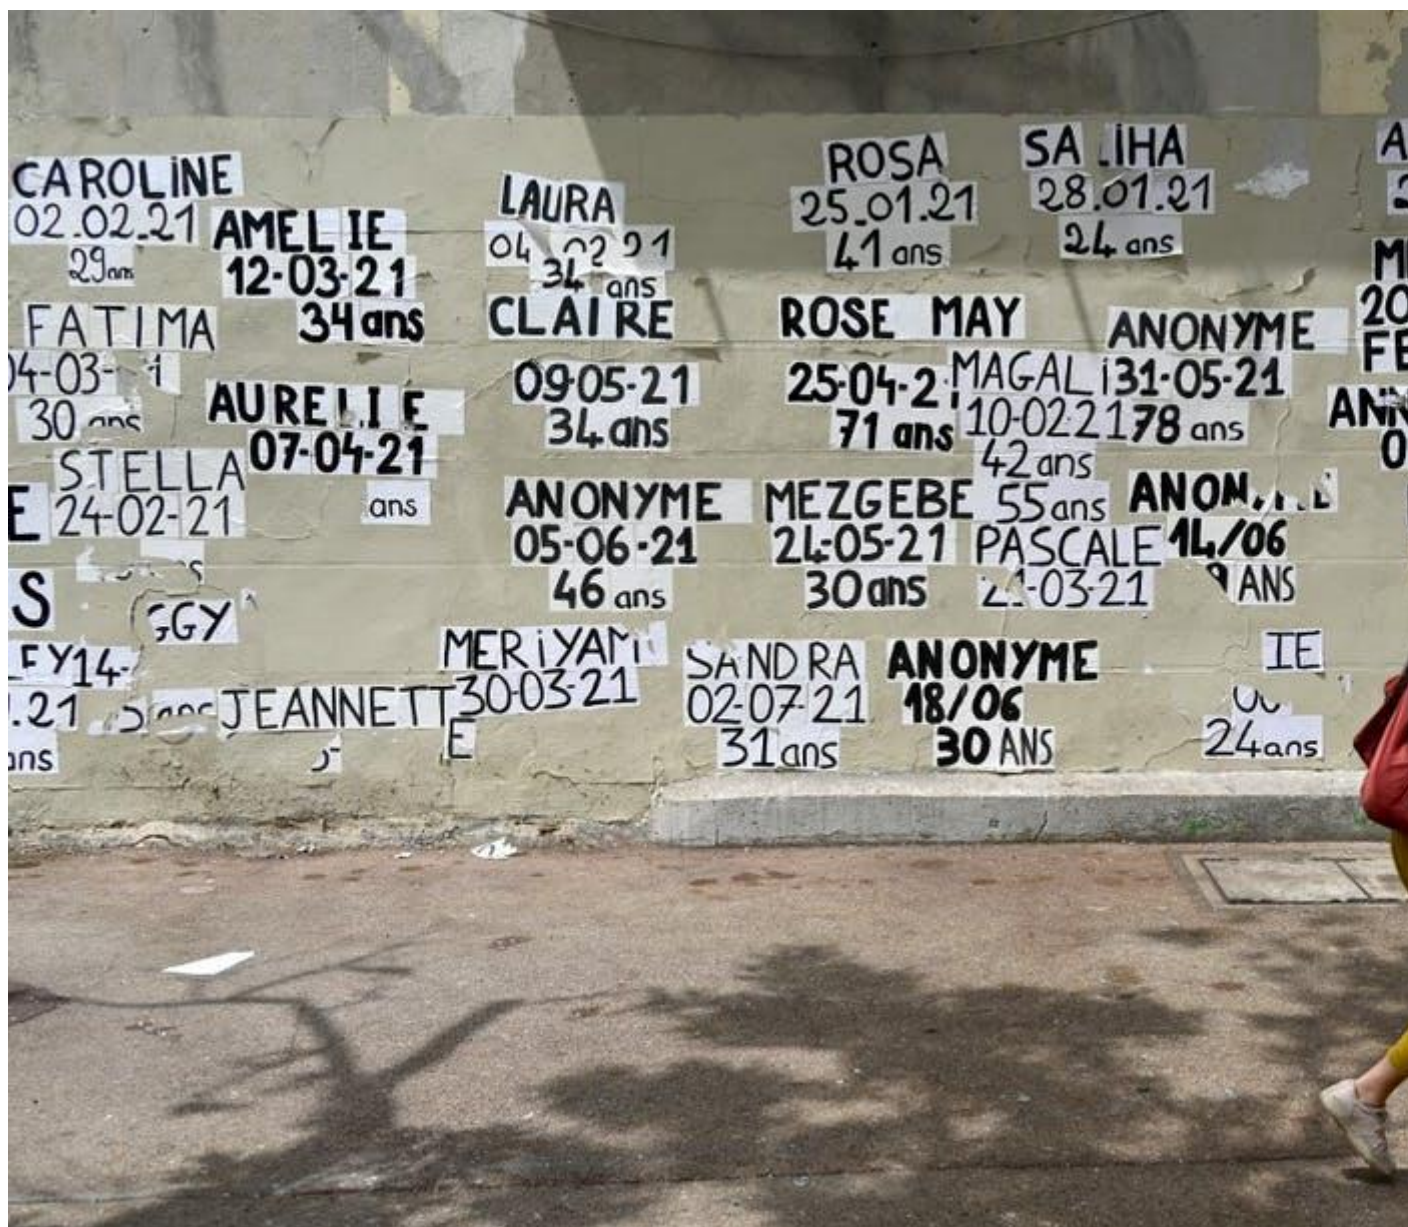 CAROLINE
02.02.21
29 ans
AMELIE
12-03-21
34 ans
FATIMA
04-03-
30 ans
AURELIE
07-04-21
ans
STELLA
24-02-21
E
S
GGY
EY 14-
.21
ans
ans
JEANNETT
E
LAURA
04 02 21
34 ans
CLAIRE
09-05-21
34 ans
ANONYME
05-06-21
46 ans
MERiYAM
30-03-21
ROSA
25.01.21
41 ans
ROSE MAY
25-04-2
71 ans
MEZGEBE
24-05-21
30 ans
SANDRA
02-07-21
31 ans
SALiHA
28.01.21
24 ans
MAGALi
10-02-21
42 ans
55 ans
PASCALE
21-03-21
ANONYME
18/06
30 ANS
ANONYME
31-05-21
78 ans
ANONYME
14/06
9 ANS
IE
24 ans
A
2
M
20
FE
ANN
0